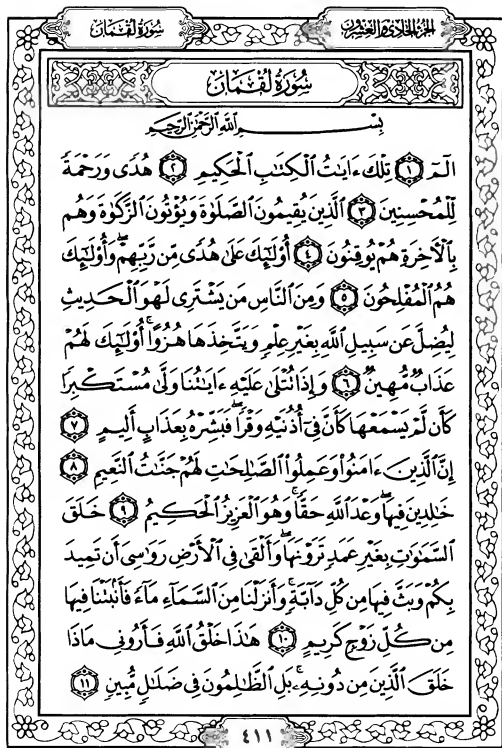 سُورَةُ لُقۡمَان
الجزء الحادي والعشرون
سُورَةُ لُقۡمَان
بِسۡمِ ٱللَّهِ ٱلرَّحۡمَٰنِ ٱلرَّحِيمِ
الٓمٓ ١ تِلۡكَ ءَايَٰتُ ٱلۡكِتَٰبِ ٱلۡحَكِيمِ ٢ هُدٗى وَرَحۡمَةٗ
لِّلۡمُحۡسِنِينَ ٣ ٱلَّذِينَ يُقِيمُونَ ٱلصَّلَوٰةَ وَيُؤۡتُونَ ٱلزَّكَوٰةَ وَهُم
بِٱلۡأٓخِرَةِ هُمۡ يُوقِنُونَ ٤ أُوْلَٰٓئِكَ عَلَىٰ هُدٗى مِّن رَّبِّهِمۡۖ وَأُوْلَٰٓئِكَ
هُمُ ٱلۡمُفۡلِحُونَ ٥ وَمِنَ ٱلنَّاسِ مَن يَشۡتَرِي لَهۡوَ ٱلۡحَدِيثِ
لِيُضِلَّ عَن سَبِيلِ ٱللَّهِ بِغَيۡرِ عِلۡمٖ وَيَتَّخِذَهَا هُزُوًاۚ أُوْلَٰٓئِكَ لَهُمۡ
عَذَابٞ مُّهِينٞ ٦ وَإِذَا تُتۡلَىٰ عَلَيۡهِ ءَايَٰتُنَا وَلَّىٰ مُسۡتَكۡبِرٗا
كَأَن لَّمۡ يَسۡمَعۡهَا كَأَنَّ فِيٓ أُذُنَيۡهِ وَقۡرٗاۖ فَبَشِّرۡهُ بِعَذَابٍ أَلِيمٍ ٧
إِنَّ ٱلَّذِينَ ءَامَنُواْ وَعَمِلُواْ ٱلصَّٰلِحَٰتِ لَهُمۡ جَنَّٰتُ ٱلنَّعِيمِ ٨
خَٰلِدِينَ فِيهَاۖ وَعۡدَ ٱللَّهِ حَقّٗاۚ وَهُوَ ٱلۡعَزِيزُ ٱلۡحَكِيمُ ٩ خَلَقَ
ٱلسَّمَٰوَٰتِ بِغَيۡرِ عَمَدٖ تَرَوۡنَهَاۖ وَأَلۡقَىٰ فِي ٱلۡأَرۡضِ رَوَٰسِيَ أَن تَمِيدَ
بِكُمۡ وَبَثَّ فِيهَا مِن كُلِّ دَآبَّةٖۚ وَأَنزَلۡنَا مِنَ ٱلسَّمَآءِ مَآءٗ فَأَنۢبَتۡنَا فِيهَا
مِن كُلِّ زَوۡجٖ كَرِيمٍ ١٠ هَٰذَا خَلۡقُ ٱللَّهِ فَأَرُونِي مَاذَا
خَلَقَ ٱلَّذِينَ مِن دُونِهِۦۚ بَلِ ٱلظَّٰلِمُونَ فِي ضَلَٰلٖ مُّبِينٖ ١١
٤١١